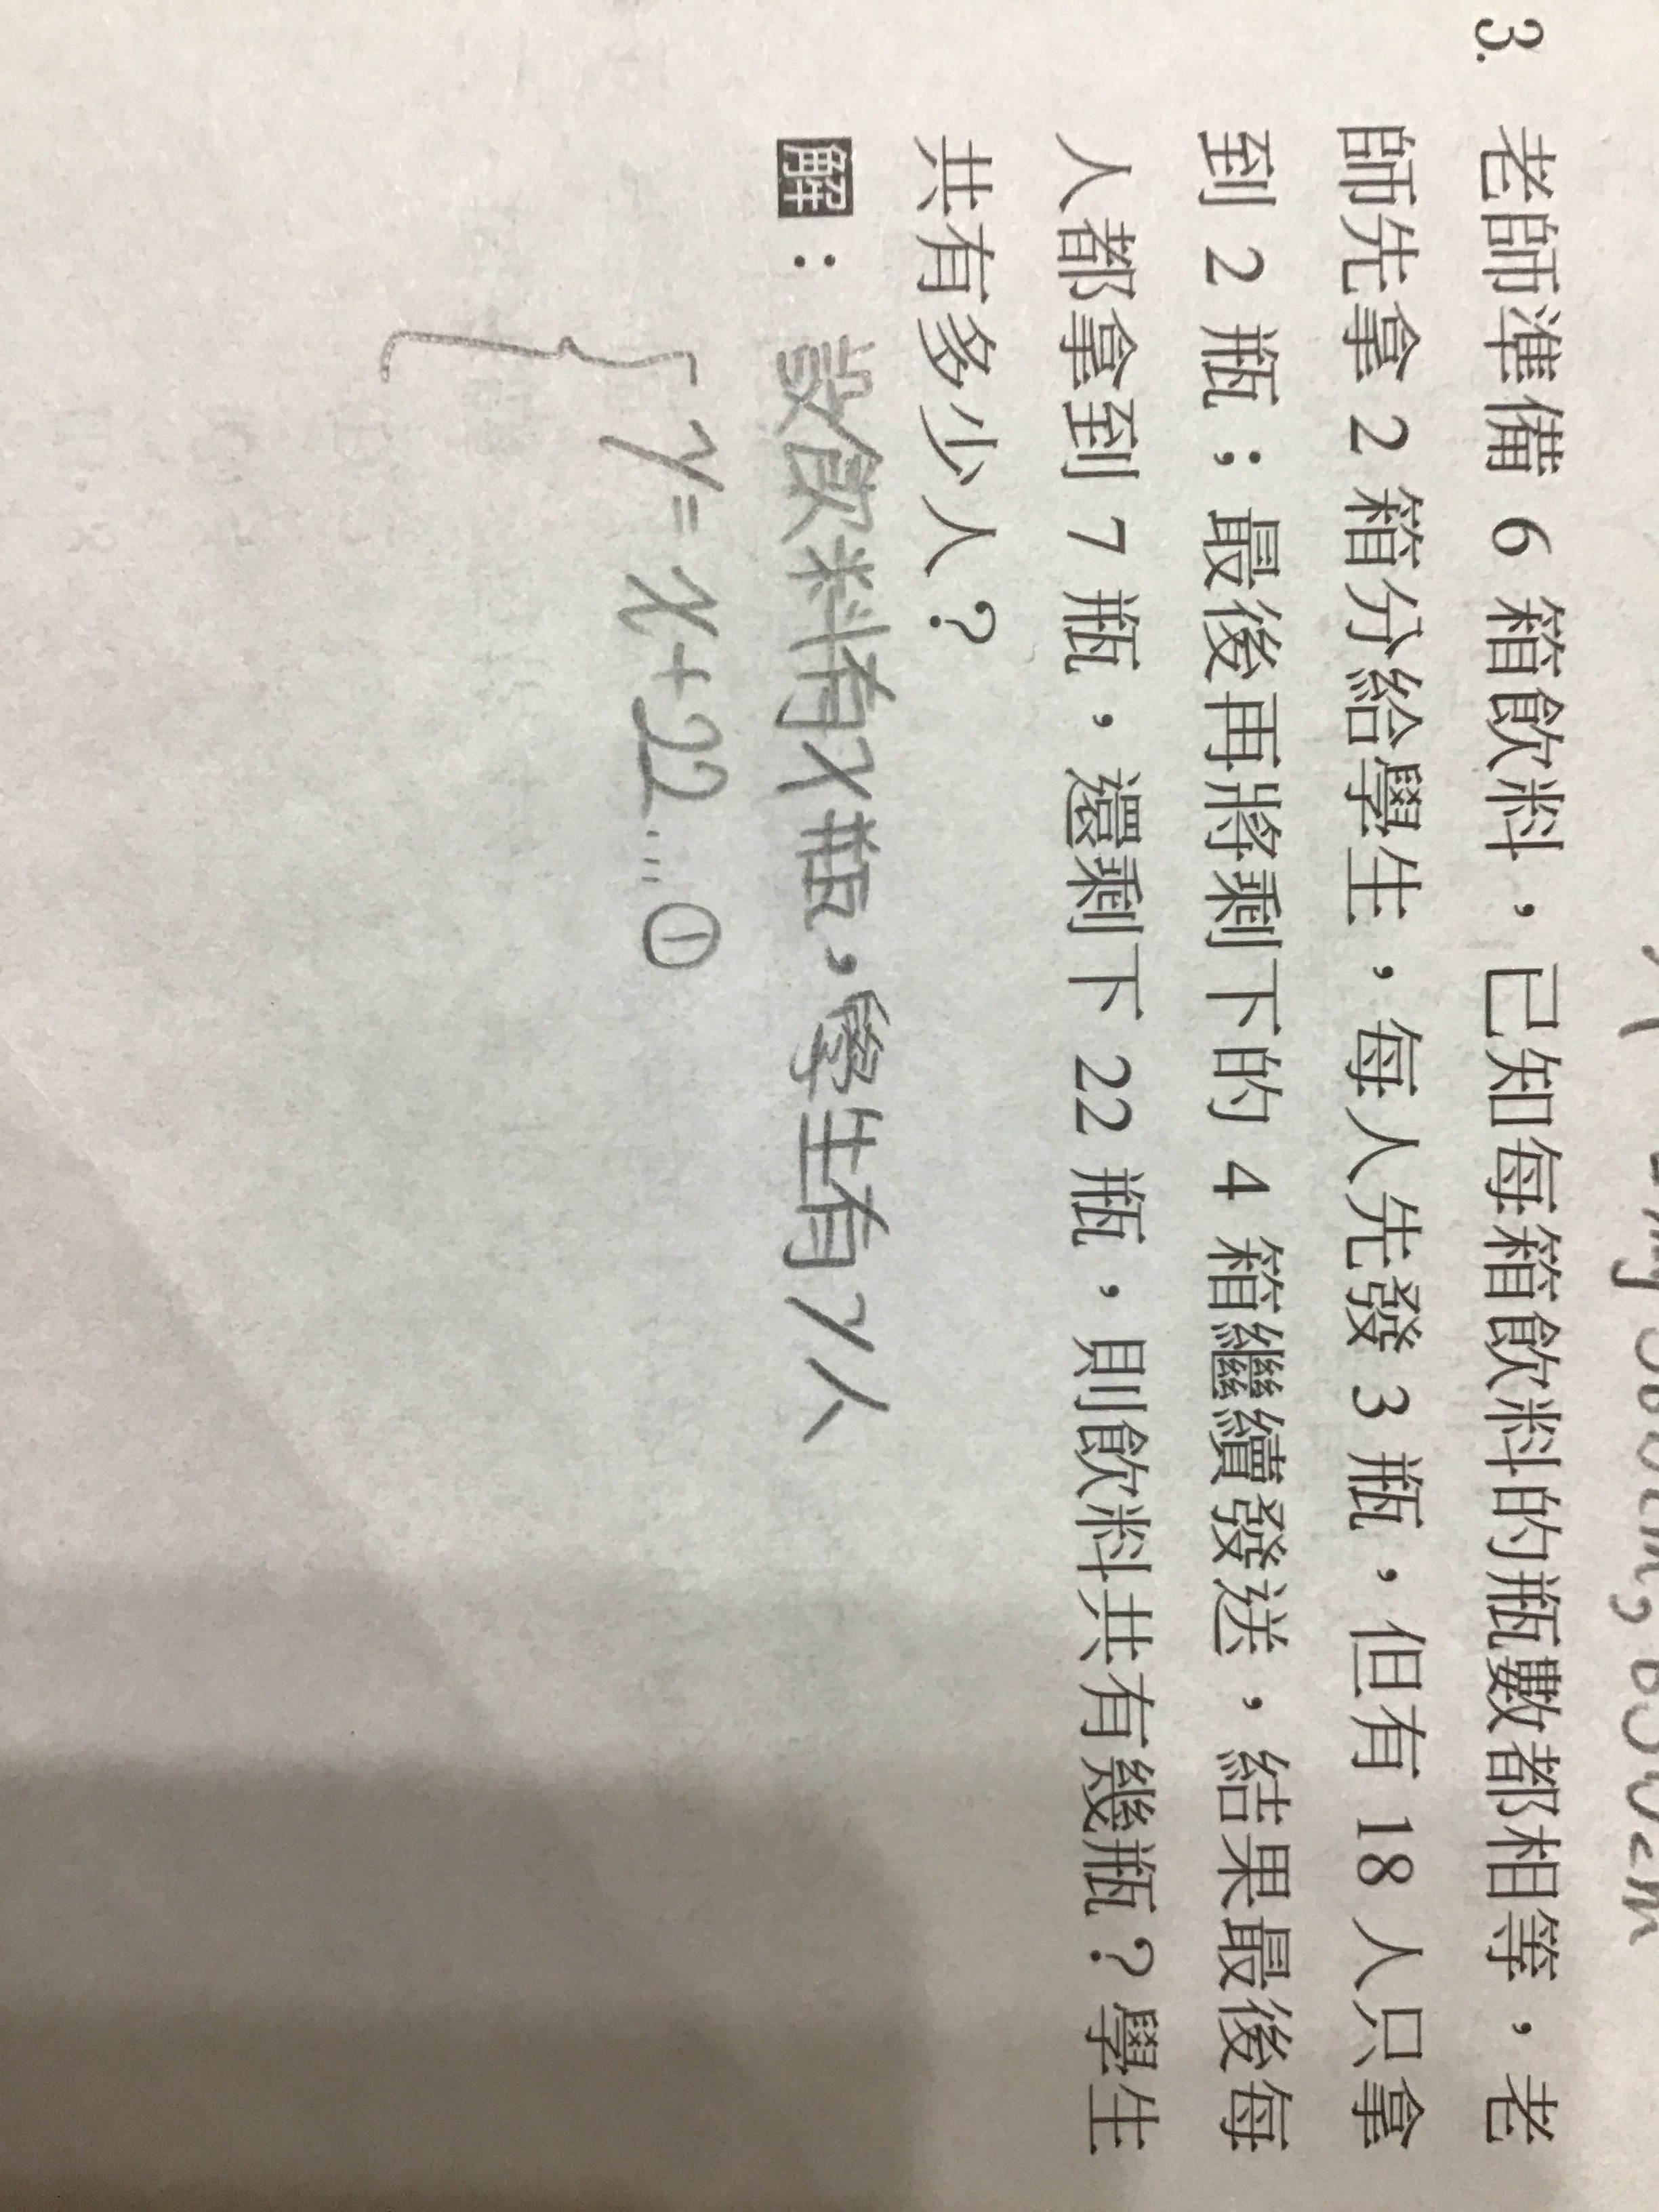 3. 老師準備 6 箱飲料，已知每箱飲料的瓶數都相等，老
師先拿 2 箱分給學生，每人先發 3 瓶，但有 18 人只拿
到 2 瓶；最後再將剩下的 4 箱繼續發送，結果最後每
人都拿到 7 瓶，還剩下 22 瓶，則飲料共有幾瓶？學生
共有多少人？
解：設飲料有x瓶，學生有y人
y=x+22...①